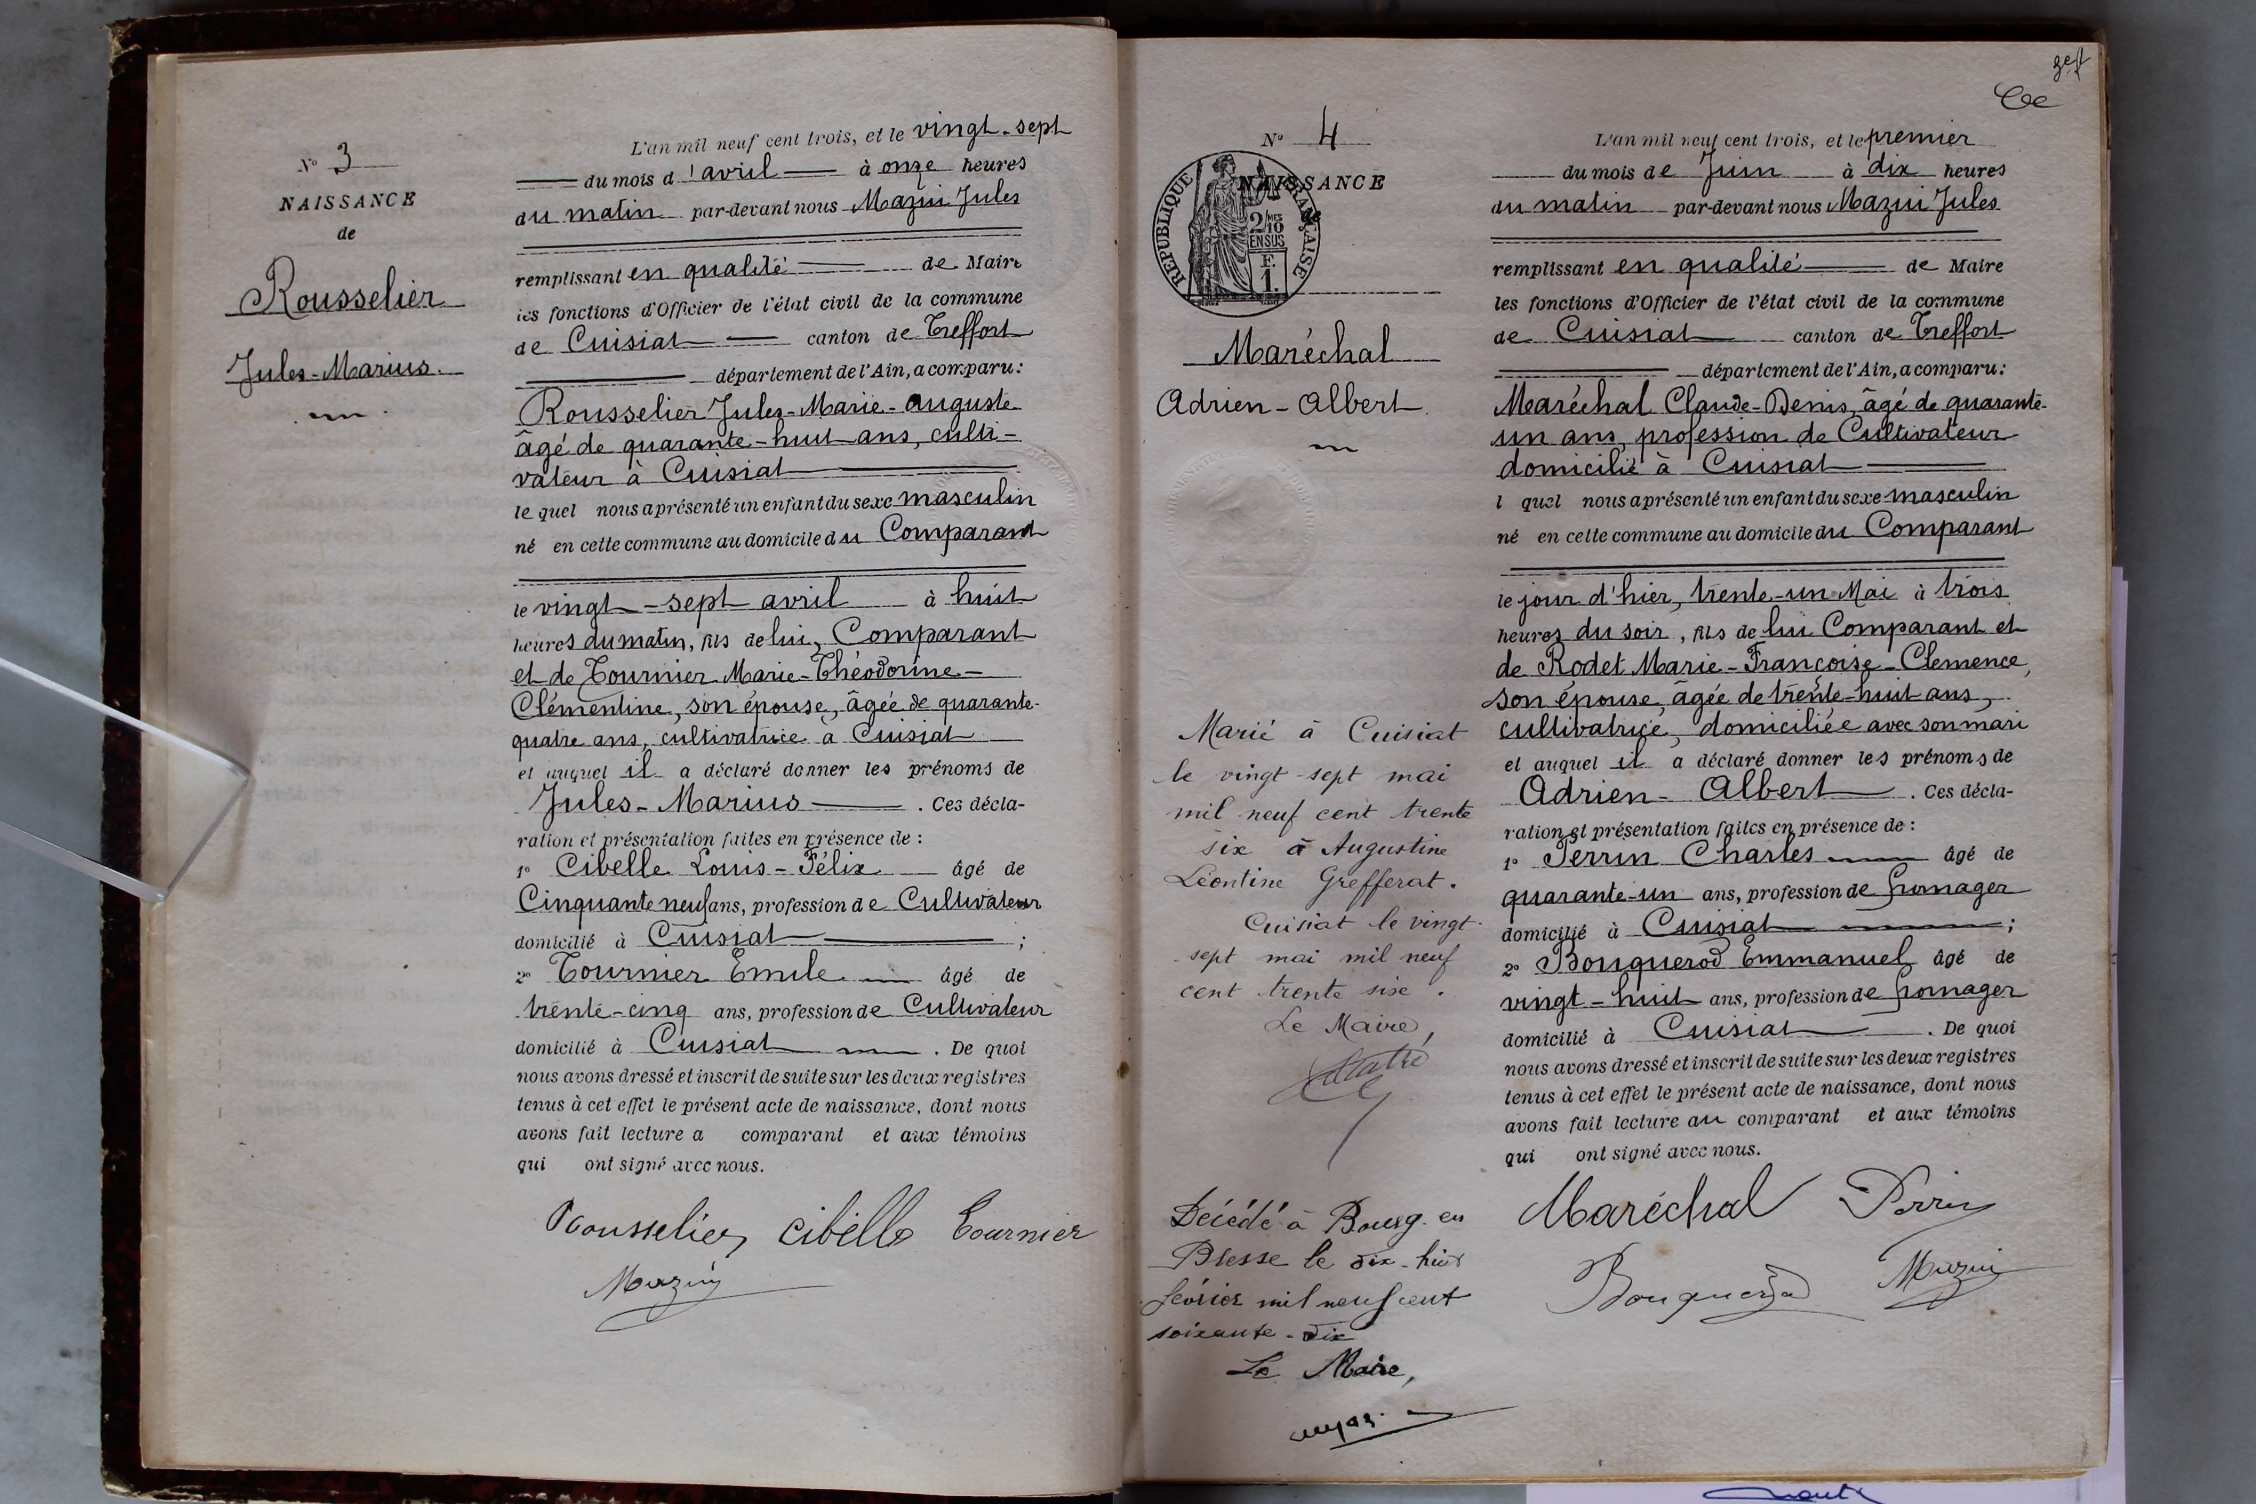 N° 3
NAISSANCE
de
Rousselier
Jules-Marius.
L'an mil neuf cent trois, et le vingt-sept
du mois d'avril à onze heures
du matin par-devant nous Mazui Jules
remplissant en qualité de Maire
les fonctions d'Officier de l'état civil de la commune
de Cuisiat canton de Treffort
département de l'Ain, a comparu:
Rousselier Jules-Marie-Auguste
âgé de quarante-huit ans, culti-
vateur à Cuisiat
le quel nous a présenté un enfant du sexe masculin
né en cette commune au domicile du Comparant
le vingt-sept avril à huit
heures du matin, fils de lui, Comparant
et de Tournier Marie-Théodorine-
Clémentine, son épouse, âgée de quarante-
quatre ans, cultivatrice à Cuisiat
et auquel il a déclaré donner les prénoms de
Jules-Marius. Ces décla-
ration et présentation faites en présence de :
1° Cibelle Louis-Félix âgé de
Cinquante neuf ans, profession de Cultivateur
domicilié à Cuisiat ;
2° Tournier Emile âgé de
trente-cinq ans, profession de Cultivateur
domicilié à Cuisiat . De quoi
nous avons dressé et inscrit de suite sur les deux registres
tenus à cet effet le présent acte de naissance, dont nous
avons fait lecture a comparant et aux témoins
qui ont signé avec nous.
Rousselier Cibelle Tournier
Mazui
N° 4
NAISSANCE
RÉPUBLIQUE FRANÇAISE
2/10 MES
EN SUS
F.
1.
Maréchal
Adrien-Albert.
Marié à Cuisiat
le vingt-sept mai
mil neuf cent trente
six à Augustine
Léontine Grefferat.
Cuisiat le vingt-
sept mai mil neuf
cent trente six.
Le Maire,
Décédé à Bourg-en
Bresse le dix-huit
février mil neuf cent
soixante-dix
Le Maire,
L'an mil neuf cent trois, et le premier
du mois de Juin à dix heures
du matin par-devant nous Mazui Jules
remplissant en qualité de Maire
les fonctions d'Officier de l'état civil de la commune
de Cuisiat canton de Treffort
département de l'Ain, a comparu:
Maréchal Claude-Denis, âgé de quarante-
un ans, profession de Cultivateur
domicilié à Cuisiat
l quel nous a présenté un enfant du sexe masculin
né en cette commune au domicile du Comparant
le jour d'hier, trente-un Mai à trois
heures du soir, fils de lui Comparant et
de Rodet Marie-Françoise-Clemence,
son épouse, âgée de trente-huit ans,
cultivatrice, domiciliée avec son mari
et auquel il a déclaré donner les prénoms de
Adrien-Albert . Ces décla-
ration et présentation faites en présence de :
1° Perrin Charles âgé de
quarante-un ans, profession de fromager
domicilié à Cuisiat ;
2° Bouquerod Emmanuel âgé de
vingt-huit ans, profession de fromager
domicilié à Cuisiat . De quoi
nous avons dressé et inscrit de suite sur les deux registres
tenus à cet effet le présent acte de naissance, dont nous
avons fait lecture au comparant et aux témoins
qui ont signé avec nous.
Maréchal Perrin
Bouquerod Mazui